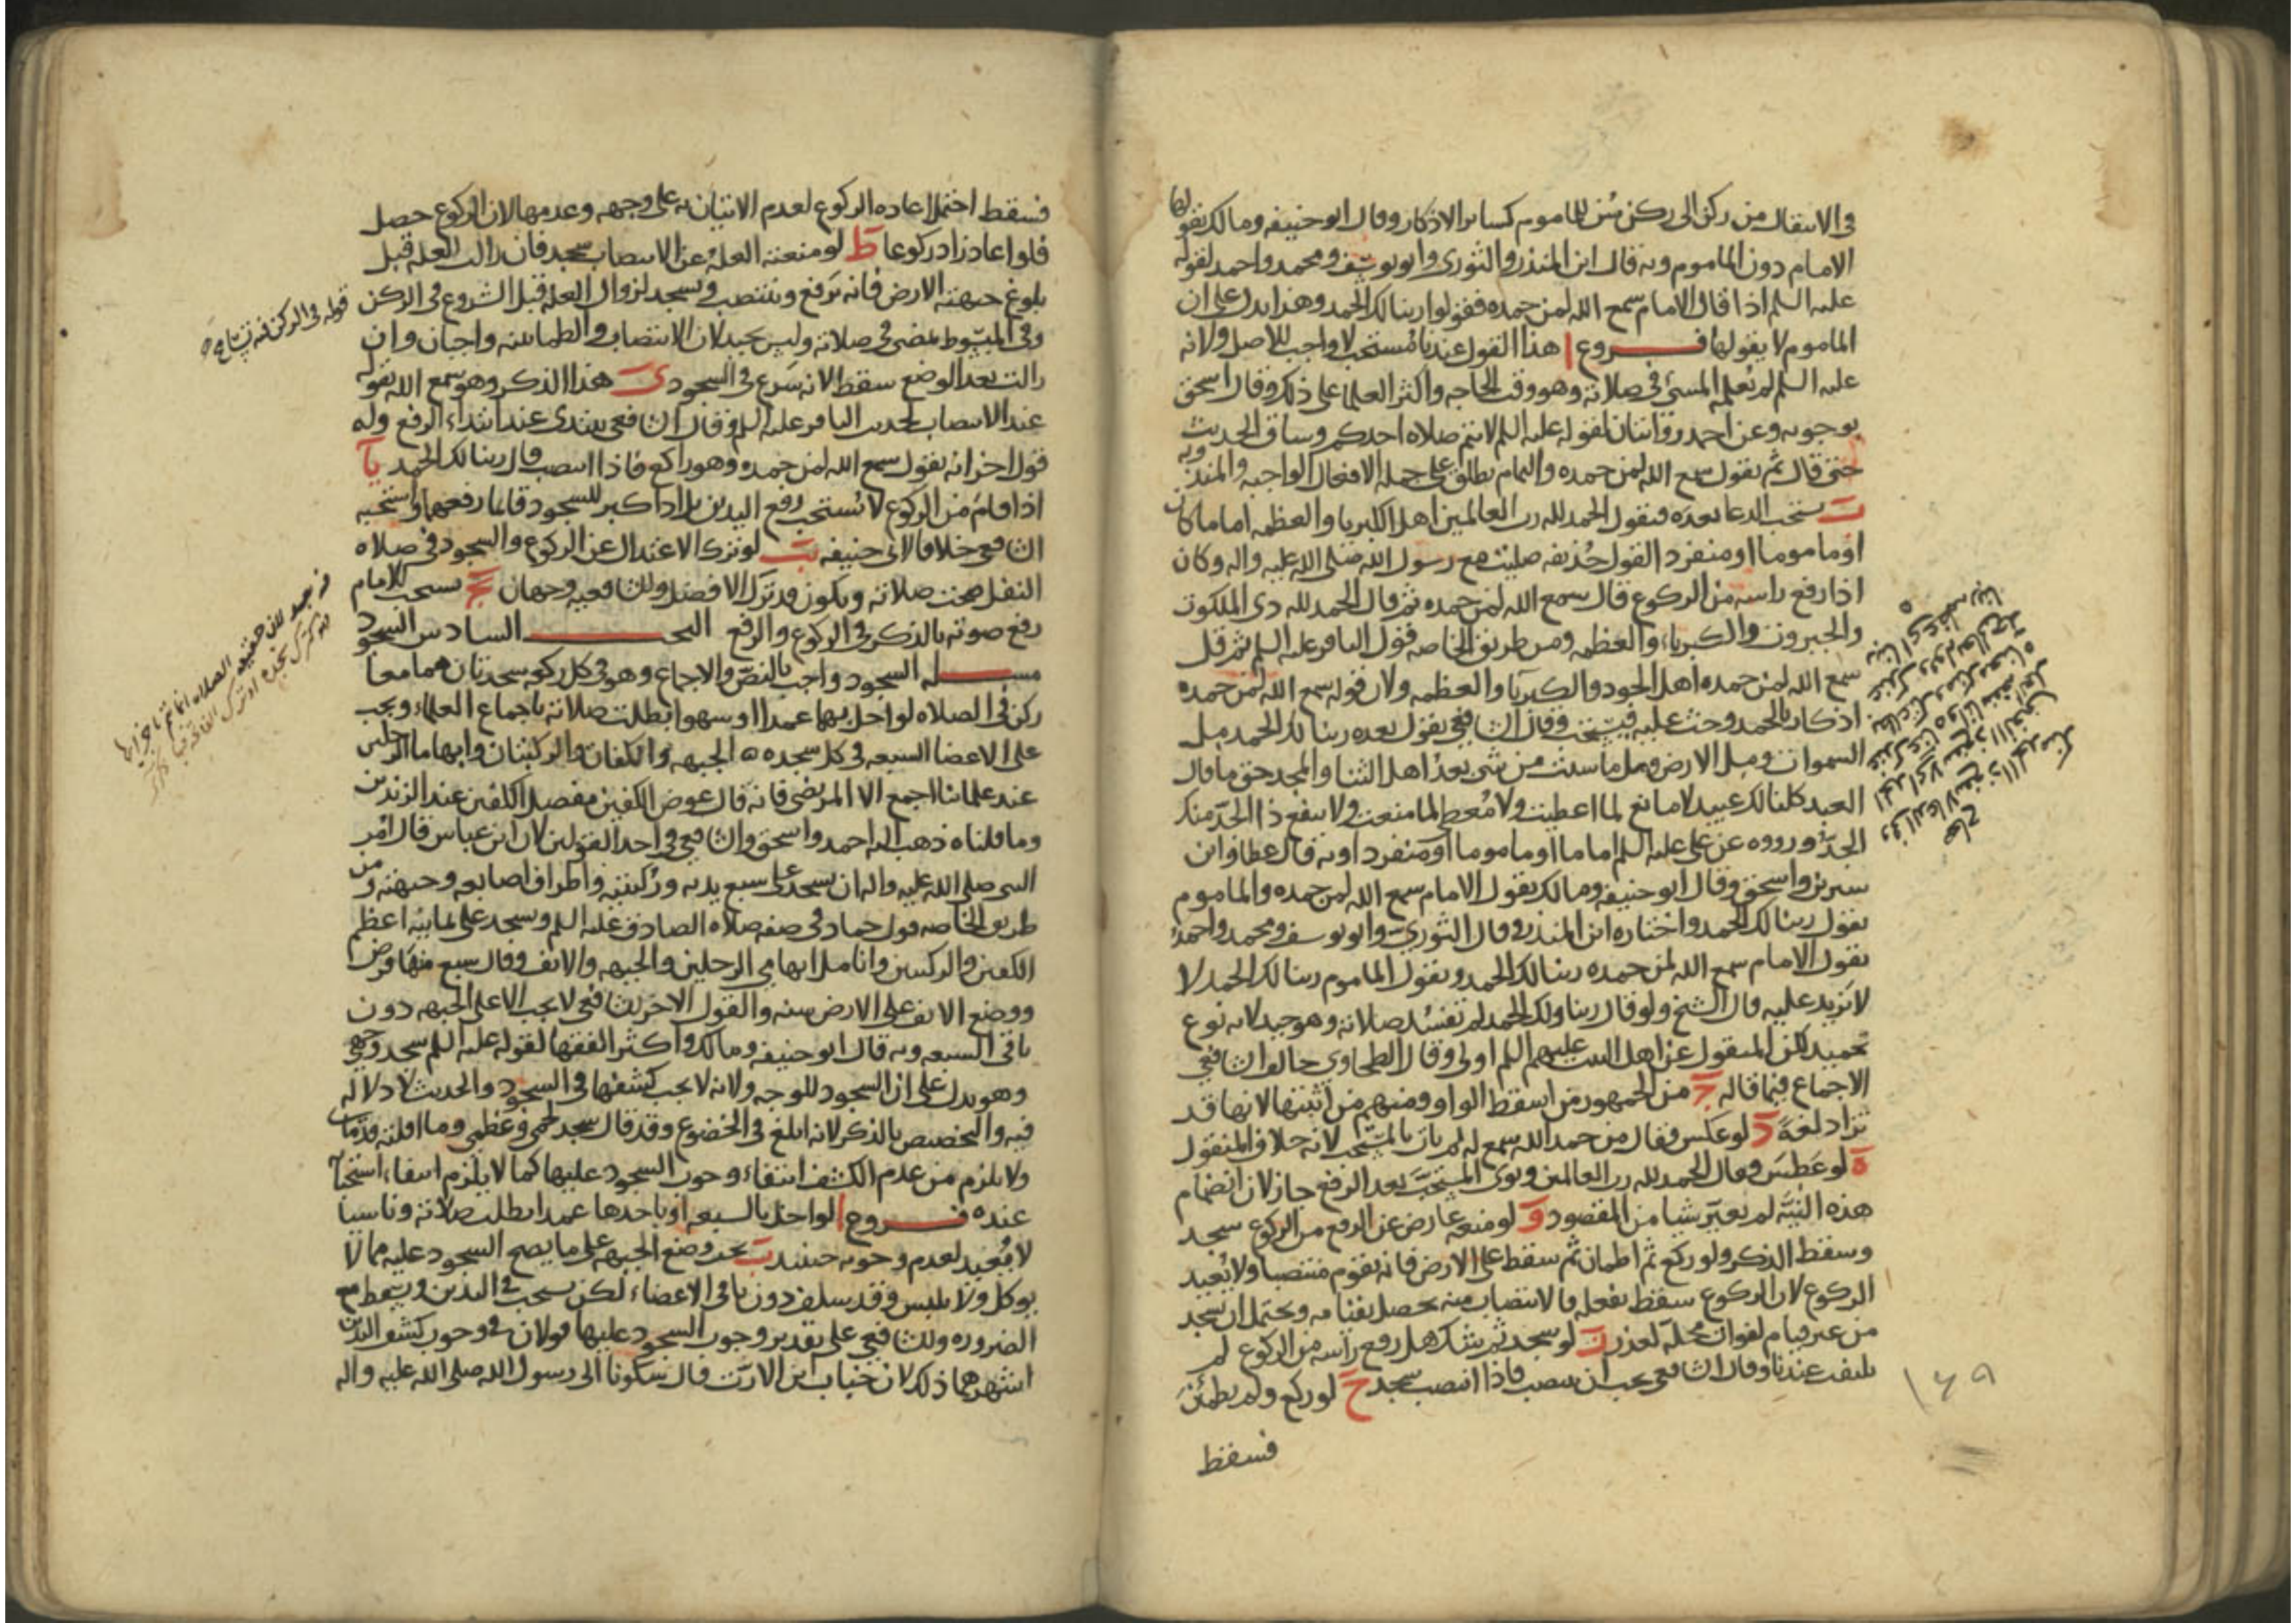 في الانتقال من ركن الى ركن سُن للماموم كسائر الاذكار وقال ابو حنيفه ومالك يقولها
الامام دون الماموم وبه قال ابن المنذر والثوري وابو يوسف ومحمد واحمد لقوله
عليه السلم اذا قال الامام سمع الله لمن حمده فقولوا ربنا لك الحمد وهذا يدل على ان
الماموم لا يقولها فـــروع ا هذا القول عندنا مُستحب لا واجب للاصل ولانه
عليه السلم لم يُعلمه المسئ في صلاته وهو وقت الحاجه واكثر العلما على ذلك وقال اسحق
بوجوبه وعن احمد روايتان لقوله عليه السلم لا تتم صلاه احدكم وساق الحديث
حتى قال ثم يقول سمع الله لمن حمده والتمام يطلق على جمله الافعال الواجبه والمندوبه
ب يستحب الدعا بعده فيقول الحمد لله رب العالمين اهل الكبريا والعظمه اماما كان
او ماموما او منفردا لقول حُذيفه صليت مع رسول الله صلى الله عليه واله وكان
اذا رفع راسه من الركوع قال سمع الله لمن حمده ثم قال الحمد لله ذي الملكوت
والجبروت والكبرياء والعظمه ومن طريق الخاصه قول الباقر عليه السلم ثم قل
سمع الله لمن حمده اهل الجود والكبريآ والعظمه ولان قوله سمع الله لمن حمده
اذكار بالحمد وحث عليه فيستحب وقال الشافعي يقول بعده ربنا لك الحمد مل
السموات ومل الارض ومل ما شئت من شي بعدُ اهل الثنا والمجد حق ما قال
العبد كلنا لك عبيد لا مانع لما اعطيت ولا مُعطِ لما منعت ولا ينفع ذا الجدّ منك
الجدّ ورووه عن علي عليه السلم اماما او ماموما او منفردا وبه قال عطا وابن
سيرين واسحق وقال ابو حنيفه ومالك يقول الامام سمع الله لمن حمده والماموم
يقول ربنا لك الحمد واختاره ابن المنذر وقال الثوريّ وابو يوسف ومحمد واحمد
يقول الامام سمع الله لمن حمده ربنا لك الحمد ويقول الماموم ربنا لك الحمد لا
لا يزيد عليه قال الشيخ ولو قال ربنا ولك الحمد لم تفسُد صلاته وهو جيد لانه نوع
تحميد لكن المنقول عن اهل البيت عليهم السلم اولى وقال الطحاوي خالف الشافعي
الاجماع فيما قاله ج من الجمهور من اسقط الواو ومنهم من اثبتها لانها قد
تزاد لغةً د لو عكس فقال من حمد الله سمع له لم يات بالمستحب لانه خلاف المنقول
ه لو عَطس فقال الحمد لله رب العالمين ونوى المستحبّ بعد الرفع جاز لان انضمام
هذه النيّه لم يغيّر شيا من المقصود و لو منعه عارض عن الرفع من الركوع سجد
وسقط الذكر ولو ركع ثم اطمان ثم سقط على الارض فانه يقوم منتصبا ولا يُعيد
الركوع لان الركوع سقط بفعله فالانتصاب منه يحصل بقيامه ويحتمل ان يسجد
من غير قيام لفوات محلّه لعذر ز لو سجد ثم شك هل رفع راسه من الركوع لم
يلتفت عندنا وقال الشافعي يجب ان ينتصب فاذا انتصب سجد ح لو ركع ولم يطمئن
فسقط
١٤٩
فسقط احتمل اعاده الركوع لعدم الاتيان به على وجهه وعدمها لان الركوع حصل
فلو اعاد زاد ركوعا ط لو منعته العله عن الانتصاب سجد فان زالت العله قبل
بلوغ جبهته الارض فانه يَرفع وينتصب ويسجد لزوال العله قبل الشروع في الركن
وفي المبسوط يمضي في صلاته وليس بجيد لان الانتصاب والطمانينه واجبان وان
زالت بعد الوضع سقط لانه شرع في السجود ي هذا الذكر وهو سمع الله يقوله
عند الانتصاب لحديث الباقر عليه السلم وقال الشافعي يبتدئ عند ابتداء الرفع وله
قول اخر انه يقول سمع الله لمن حمده وهو راكع فاذا انتصب قال ربنا لك الحمد يآ
اذا قام من الركوع لا يُستحب رفع اليدين بل اذا كبر للسجود قائما رفعهما واستحبه
الشافعي خلافا لابي حنيفه يب لو ترك الاعتدال عن الركوع والسجود في صلاه
النفل صحت صلاته ويكون قد ترك الافضل وللشافعيه وجهان يج يستحب للامام
رفع صوته بالذكر في الركوع والرفع البحـــــث السادس السجود
مســـله السجود واجب بالنصّ والاجماع وهو في كل ركعه سجدتان هما معا
ركن في الصلاه لو اخل بهما عمدا او سهوا بطلت صلاته باجماع العلماء ويجب
على الاعضا السبعه في كل سجده ه الجبهه والكفان والركبتان وابهاما الرجلين
عند علمائنا اجمع الا المرتضى فانه قال عوض الكفين مفصل الكفين عند الزندين
وما قلناه ذهب اليه احمد واسحق والشافعي في احد القولين لان ابن عباس قال اُمر
النبي صلى الله عليه واله ان يسجد على سبع يديه وركبتيه واطراف اصابعه وجبهته ومن
طريق الخاصه قول حماد في صفه صلاه الصادق عليه السلم وسجد على ثمانيه اعظم
الكفين والركبتين وانامل ابهامي الرجلين والجبهه والانف وقال سبع منها فرض
ووضع الانف على الارض سنه والقول الاخر للشافعي لا يجب الا على الجبهه دون
باقي السبعه وبه قال ابو حنيفه ومالك واكثر الفقها لقوله عليه السلم سجد وجهي
وهو يدل على ان السجود للوجه ولانه لا يجب كشفها في السجود والحديث لا دلاله
فيه والتخصيص بالذكر لانه ابلغ في الخضوع وقد قال سجد لحمي وعَظمي وما اقلته قدماي
ولا يلزم من عدم الكشف انتفاء وجوب السجود عليها كما لا يلزم انتفاء استحبابه
عنده فـــروع ا لو اخل بالسبعه او باحدها عمدا بطلت صلاته وناسيا
لا يُعيد لعدم وجوبه حينئذ ب يجب وضع الجبهه على ما يصح السجود عليه مما لا
يوكل ولا يلبس وقد سلف دون باقي الاعضاء لكن يستحب في اليدين ويسقط مع
الضروره وللشافعي على تقدير وجوب السجود عليها قولان في وجوب كشف اليدين
اشهرهما ذلك لان خباب ابن الارتّ قال شكونا الى رسول الله صلى الله عليه واله